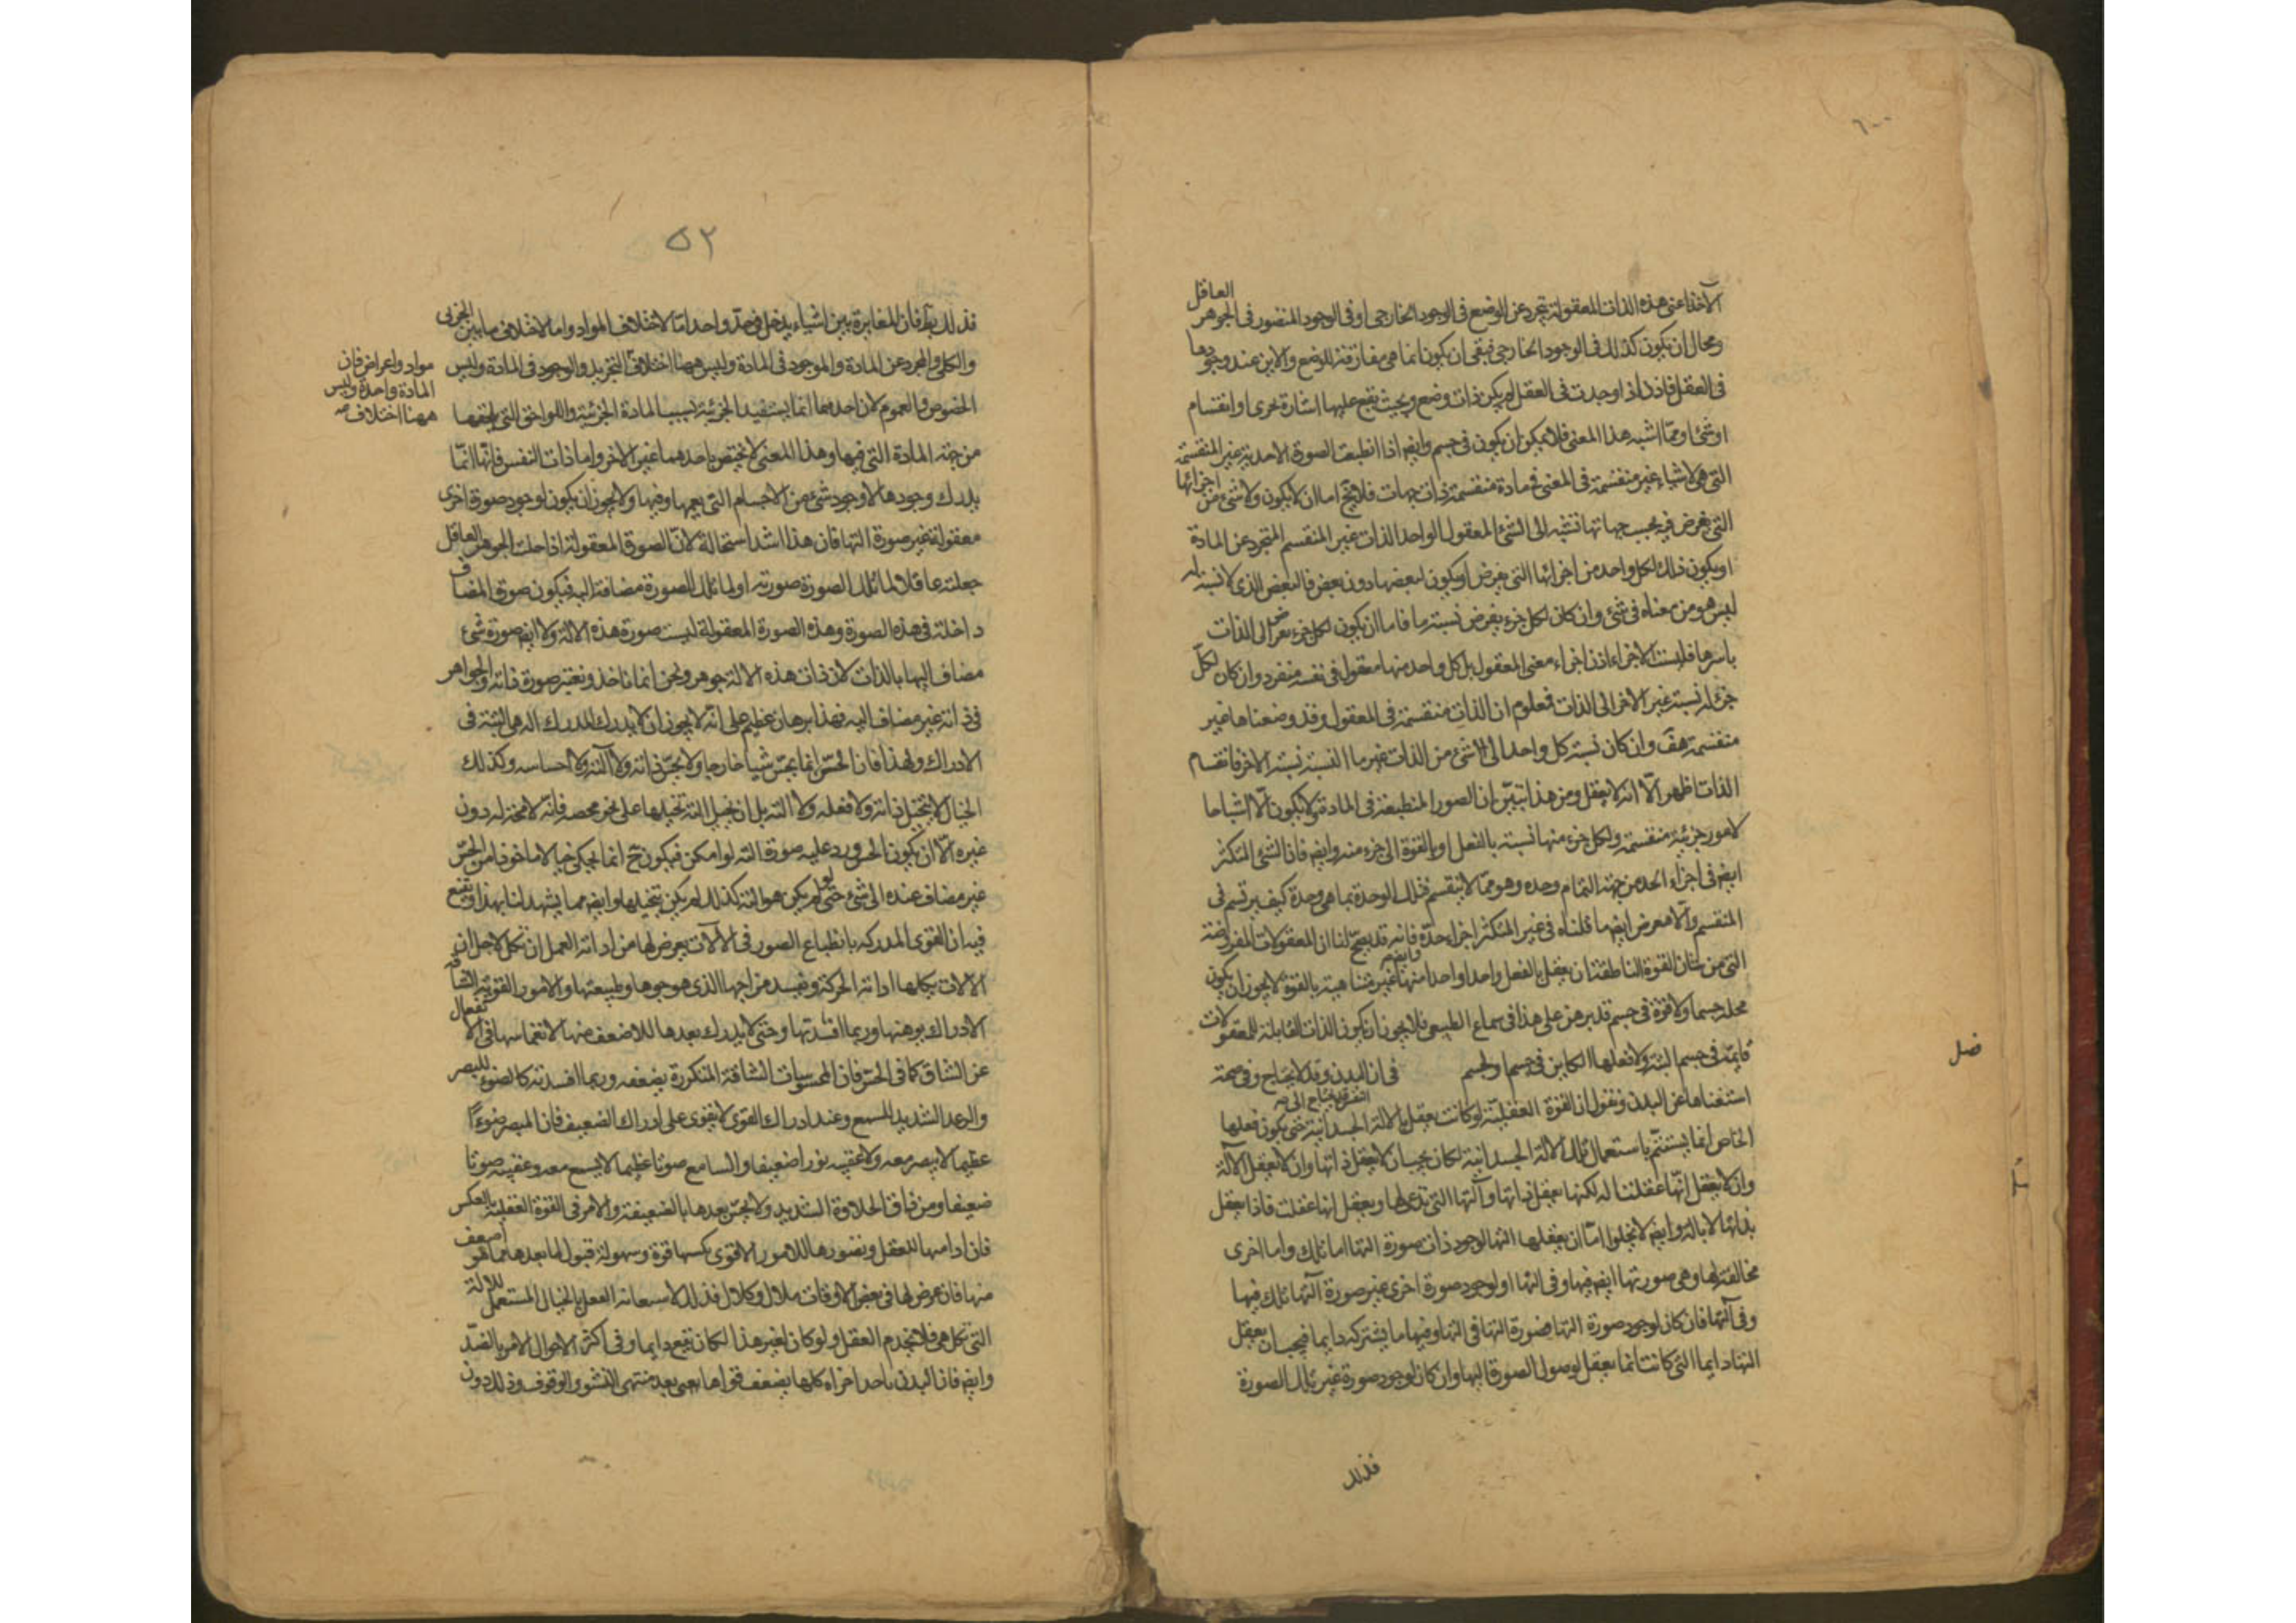 ٦٠٠
الآخذ اعنى هذه الذات المعقولة تتجرد عن الوضع فى الوجود الخارجى او فى الوجود المتصور فى الجوهر العاقل
ومحال ان يكون كذلك فى الوجود الخارجى فبقى ان يكون انما هى مفارقة للوضع والاين عند وجودها
فى العقل فاذن اذا وجدت فى العقل لم يكن ذات وضع وبحيث يقع عليها اشارة تجرى او انقسام
او شئ او مما اشبه هذا المعنى فلا يمكن ان يكون فى جسم وايضا اذا انطبعت الصورة الاحدية غير المنقسمة
التى هى لاشياء غير منقسمة فى المعنى فى مادة منقسمة ذات جهات فلا يخ اما ان لا يكون ولا شئ من اجزائها
التى تفرض فيه بحسب جهاتها نسبة الى الشئ المعقول الواحد الذات غير المنقسم المتجرد عن المادة
او يكون ذلك لكل واحد من اجزائها التى يفرض او يكون لبعضها دون بعض فالبعض الذى لا نسبة له
ليس هو من معناه فى شئ وان كان لكل جزء يفرض نسبة ما فاما ان يكون لكل جزء يفرض الى الذات
باسرها فليست الاجزاء اذن اجزاء معنى المعقول بل كل واحد منها معقول فى نفسه منفرد وان كان لكل
جزء له نسبة غير الاخر الى الذات فمعلوم ان الذات منقسمة فى المعقول وقد وضعناها غير
منقسمة هف وان كان نسبة كل واحد الى شئ من الذات غير ما اليه نسبة الاخر فانقسام
الذات اظهر الا انه لا يعقل ومن هذا تبين ان الصور المنطبعة فى المادة لا يكون الا اشباحا
لامور جزئية منقسمة ولكل جزء منها نسبة بالفعل او بالقوة الى جزء منه وايضا فان الشئ المتكثر
ايضا فى اجزاء الحد من جهة التمام وحده وهو مما لا ينقسم فتلك الوحدة بما هى وحدة كيف يرتسم فى
المنقسم والا معرض ايضا ما قلناه فى غير المتكثر اجزاء حده وايضا فانه قد يصح لنا ان المعقولات المفروضة
التى من شان القوة الناطقة ان يعقل بالفعل واحدا واحدا منها غير متناهية بالقوة لا يجوز ان يكون
محله جسما ولا قوة فى جسم قد برهن على هذا فى سماع الطبيعى فلا يجوز ان يكون الذات القابلة للمعقولات
قايمة فى جسم البتة ولا فعلها الكاين فى جسم ولجسم فى ان البدن وقد لا يحتاج وفى صحة
فصل
استغناها عن البدن ونقول ان القوة العقلية لو كانت يعقل بالالة الجسدانية حتى يكون فعلها
الخاص انما يستتم باستعمال تلك الالة الجسدانية لكان يجب ان لا يعقل ذاتها وان لا يعقل الآلة
وان لا يعقل انها عقلت انه لكنها يعقل ذاتها وآلتها التى تدعى لها ويعقل انها عقلت فاذا يعقل
بذاتها لا بالة وايضا لا يخلوا اما ان يعقلها التها لوجود ذات صورة التها اما تلك واما اخرى
مخالفة لها وهى صورتها ايضا فيها وفى التها او لوجود صورة اخرى غير صورة آلتها تلك فيها
وفى آلتها فان كان لوجود صورة التها فصورة التها فى التها وفيها ما يشترك دايما فيجب ان يعقل
التها دايما التى كانت انما يعقل لوصول الصورة اليها وان كان لوجود صورة غير تلك الصورة
فذلك
٥٢
فذلك بط فان المغايرة بين اشياء يدخل فى حد واحد اما لاختلاف المواد واما لاختلاف ما بين الجزئى
والكلى والمجرد عن المادة والموجود فى المادة وليس ههنا اختلاف التجريد والوجود فى المادة وليس
مواد واعراض فان
المادة واحدة وليس
ههنا اختلاف صح
الخصوص والعموم لان احدهما انما يستفيد الجزئية بسبب المادة الجزئية واللواحق التى يلحقها
من جهة المادة التى فيها وهذا المعنى لا يختص باحدهما غير الاخر واما ذات النفس فانها انما
يدرك وجودها لا وجود شئ من الاجسام التى معها وفيها ولا يجوز ان يكون لوجود صورة اخرى
معقولة غير صورة التها فان هذا اشد استحالة لان الصورة المعقولة اذا حلت الجوهر العاقل
جعلته عاقلا لما تلك الصورة صورته او لما تلك الصورة مضافة اليه فيكون صورة المضاف
داخلة فى هذه الصورة وهذه الصورة المعقولة ليست صورة هذه الآلة ولا ايضا صورة شئ
مضاف اليها بالذات لان ذات هذه الالة جوهر ونحن انما ناخذ ونعتبر صورة ذاته والجواهر
فى ذاته غير مضاف اليه فهذا برهان عظيم على انه لا يجوز ان لا يدرك المدرك اله هى البتة فى
الادراك ولهذا فان الحس انما يحس شيا خارجا ولا يحس ذاته ولا آلته ولا احساسه وكذلك
الخيال لا يتخيل ذاته ولا فعله ولا الته بل ان يخيل الته تخيلها على نحو مخصه فانه لا محة له دون
غيره الا ان يكون الحس ورد عليه صورة الته لو امكن فيكون ح انما يحكى خيالا ماخوذا من الحس
غير مضاف عنده الى شئ حتى لو لم يكن هو الته كذلك لم يكن يتخيلها وايضا مما يشهد لنا بهذا ويقنع
فيه ان القوى المدركة بانطباع الصور فى الآلات يعرض لها من ادامة العمل ان تكل لاجل ان
الالات يكلها ادامة الحركة ويفسد مزاجها الذى هو جوهرها وطبيعتها والامور القوية الشاقة
الادراك يوهنها وربما افسدتها وحتى لا يدرك بعدها للاضعف منها لانغماسها فى الانفعال
عن الشاق كما فى الحس فان المحسوسات الشاقة المتكررة يضعفه وربما افسدته كالضوء للبصر
والرعد الشديد للسمع وعند ادراك القوى لا يقوى على ادراك الضعيف فان المبصر ضوءا
عظيما لا يبصر معه ولا عقيبه نورا ضعيفا والسامع صوتا عظيما لا يسمع معه وعقيبه صوتا
ضعيفا ومن ذاق الحلاوة الشديد ولا يحس بعدها بالضعيفة والامر فى القوة العقلية بالعكس
فان ادامتها للعقل وتصورها للامور الاقوى يكسبها قوة وسهولة قبول لما بعدها مما هو اضعف
منها فان عرض لها فى بعض الاوقات ملال وكلال فذلك لاستعانة العقل بالخيال المستعمل للالة
التى تكل هى فلا يخدم العقل ولو كان لغير هذا لكان يقع دايما وفى اكثر الاحوال الامر بالضد
وايضا فان البدن باحد اجزاء كلها يضعف قواها يعنى بعد منتهى النشو والوقوف وذلك دون